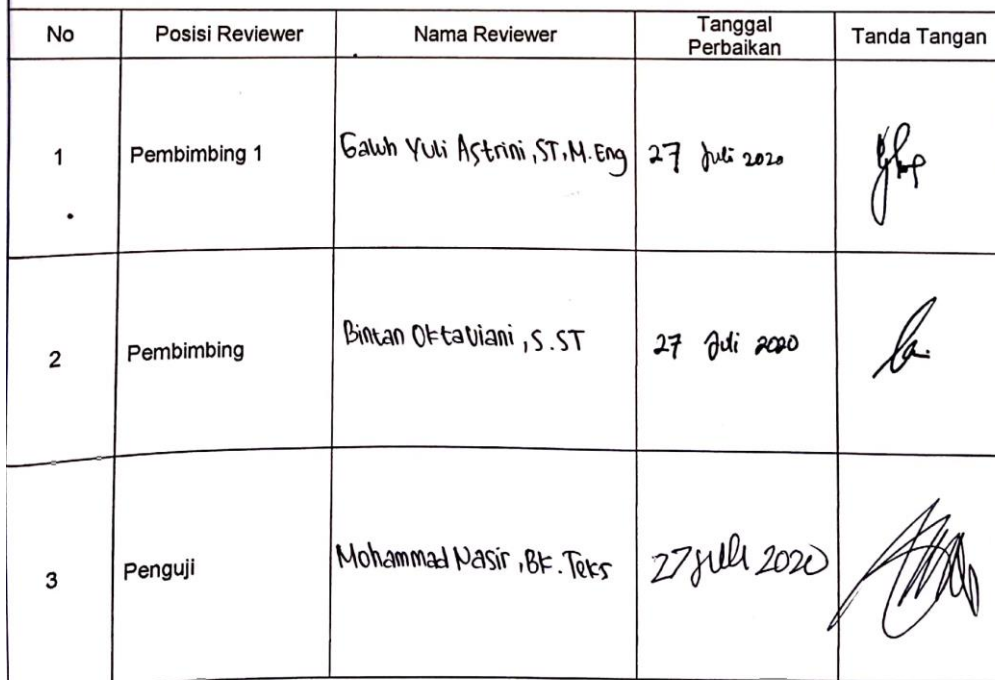 No Posisi Reviewer Nama Reviewer Tanggal Perbaikan Tanda Tangan
1 Pembimbing 1 Galuh Yuli Astrini, ST, M. Eng 27 Juli 2020
2 Pembimbing Bintan Oktaviani, S.ST 27 Juli 2020
3 Penguji Mohammad Nasir, BK. Teks 27 Juli 2020